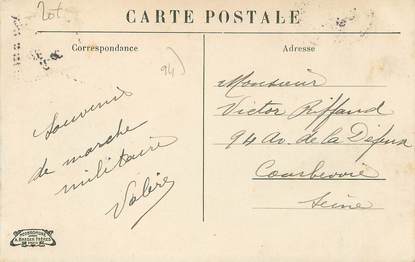 CARTE POSTALE
Correspondance
Adresse
94
Souvenir
de marche
militaire
Valère
Monsieur
Victor Riffaud
94 Av. de la Défense
Courbevoie
Seine
A. BREGER FRÈRES